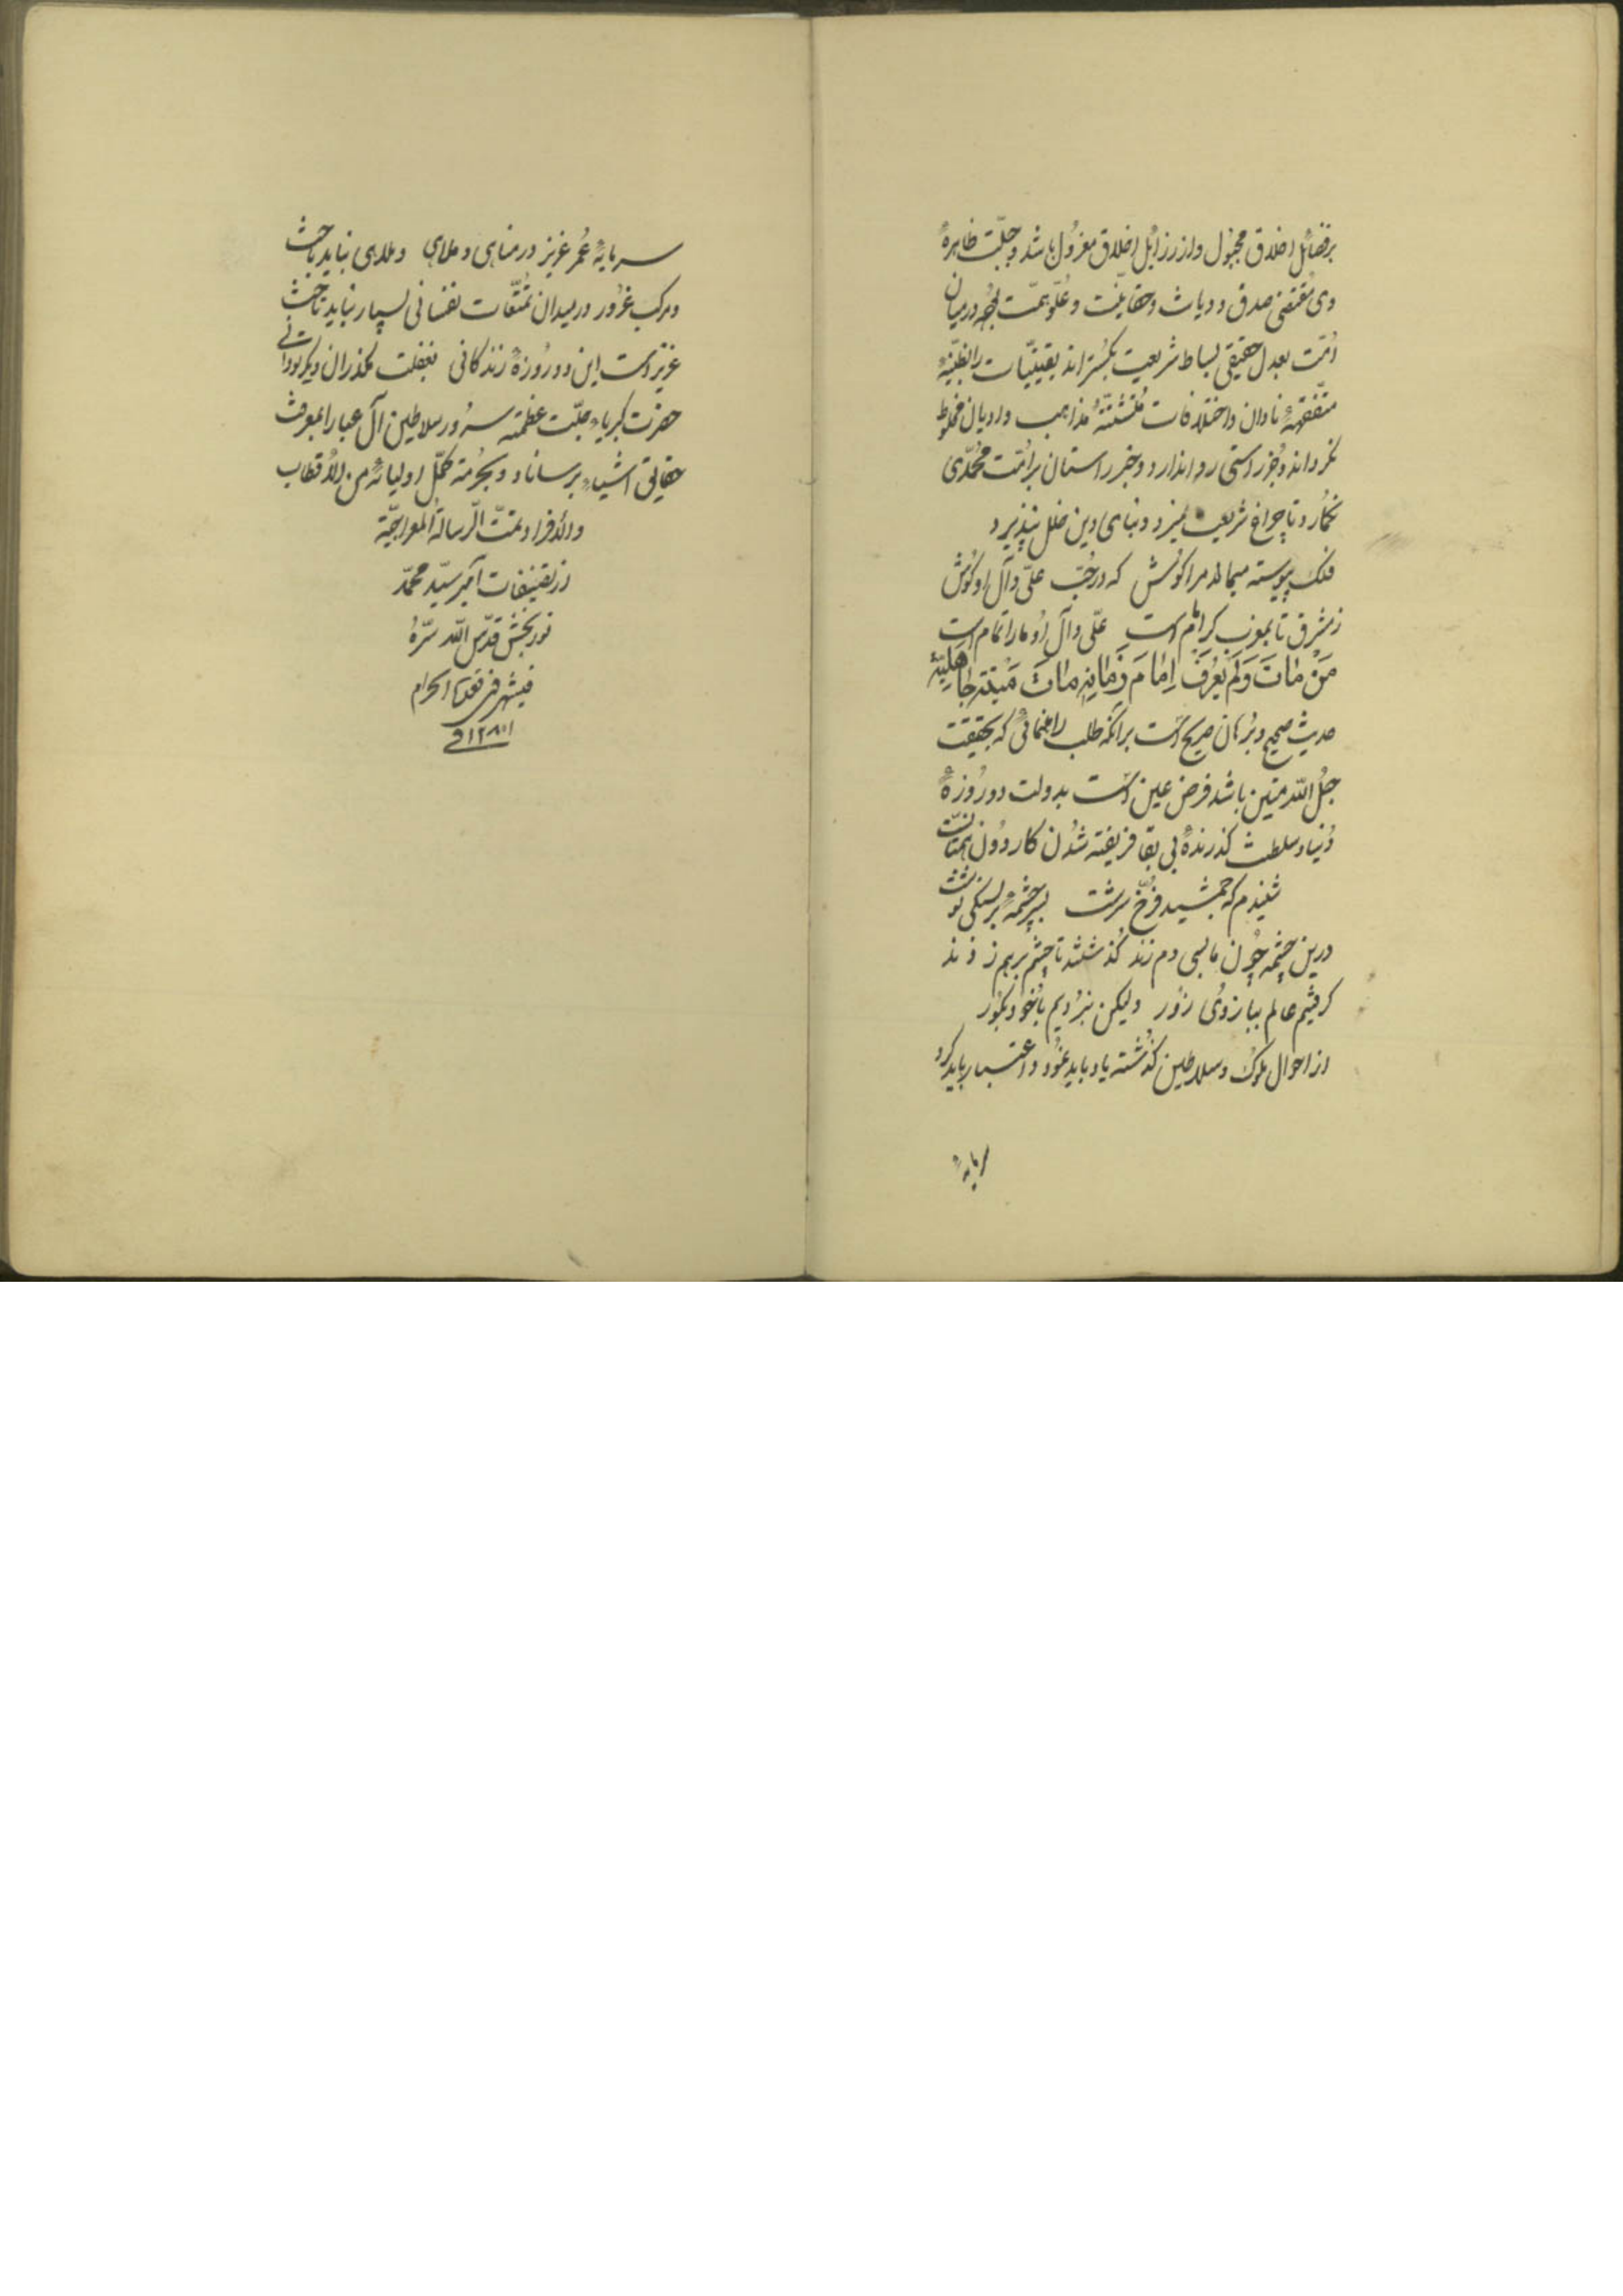 بر فضائل اخلاق مجبول و از رزائل اخلاق معزول باشد و جبلّت طاهرهٔ
وی مقتضی صدق و دیانت و حقانیّت و عُلوّ همّت بُود در میان
اُمّت بعدل حقیقی بساط شریعت بکستراند یقینیّات را بظنّیّهٔ
متفقههٔ نادان و اختلافات مُتشتّتهٔ مذاهب و ادیان مخلوط
نکرداند و جُز راستی روا ندارد و جز راستان بر اُمّت محمّدی
نکمارد تا چراغ شریعت نمیرد و بنای دین خلل نپذیرد
فلک پیوسته میمالد مرا کوش که در حُبّ علیّ و آل او کوش
ز مشرق تا بمغرب کر امام است علّی و آل اُو ما را تمام است
مَنْ مٰاتَ وَلَمْ یَعْرِفْ اِمٰامَ زَمٰانِهِ مٰاتَ مَیْتَةً جٰاهِلِیّةً
حدیث صحیح و بُرهان صریح است برآنکه طلب راهنمائی که بحقیقت
حبل اللّه متین باشد فرض عین است بدولت دو رُوزهٔ
دُنیا و سلطنت کذرندهٔ بی بقا فریفته شُدن کار دُون همّتانست
شنیدم که جمشید فرّخ سرشت بسرچشمهٔ بر بسنکی نوشت
درین چشمه چُون ما بسی دم زدند کُذشتند تا چشم برهم زدند
کرفتیم عالم ببازوی زُور ولیکن نبُردیم با خُود بکور
از احوال ملوک و سلاطین کُذشته یاد باید نمُود و اعتبار باید کرد
سرمایهٔ
سرمایهٔ عُمر عزیز در مناهی و ملاهی و ملاهی نباید باخت
و مرکب غرُور در میدان تمتّعات نفسانی بسیار نباید تاخت
عزیز است این دو رُوزهٔ زندکانی بغفلت مکذران دیکر تو دانی
حضرت کبریاء جلّت عظمته سرور سلاطین آل عبا را بمعرفت
حقایق اشیاء برساناد و بحرُمة کمّل اولیائهٔ من الاُقطاب
والاُفراد تمّت الّرسالة المعراجیّة
از تصنیفات امیر سیّد محمّد
نوربخش قدّس اللّه سرّهُ
فیشهر ذی قعدة الحرام
۱۲۸۱